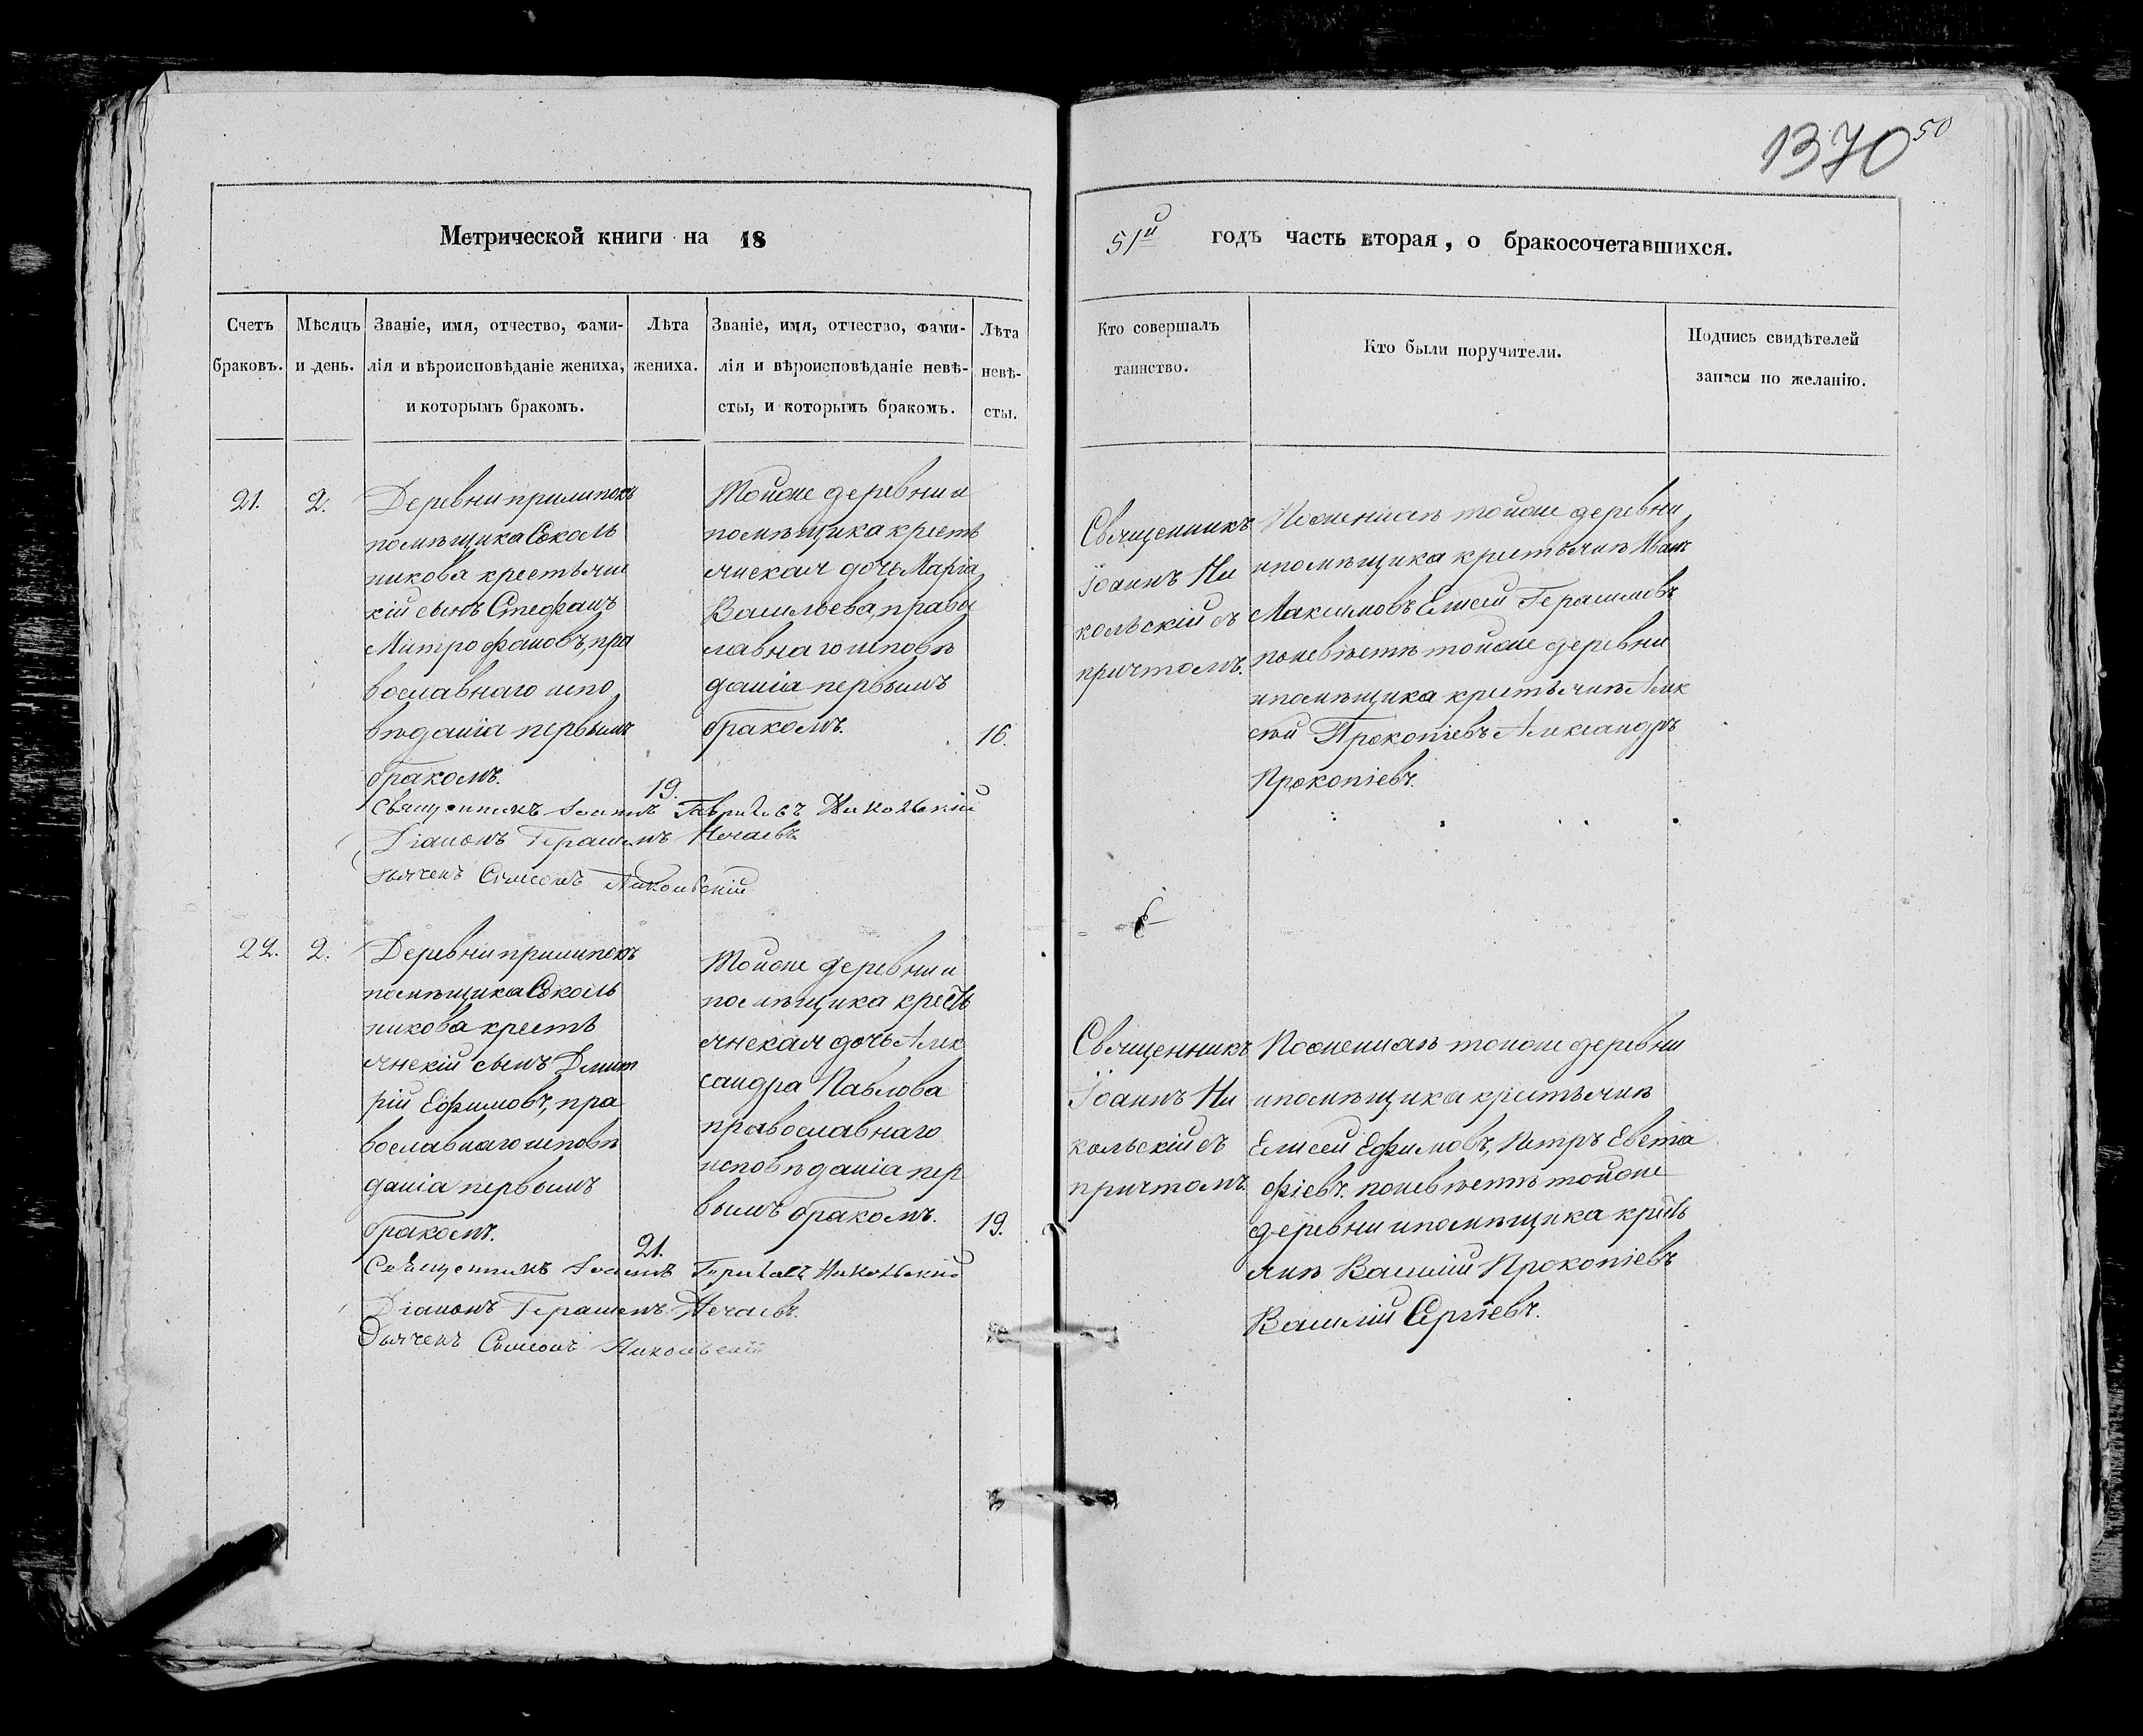 1370 50
Метрической книги на 18
51й годъ часть вторая, о бракосочетавшихся.
Счетъ браковъ.
Мѣсяцъ и день.
Званіе, имя, отчество, фами-
лія и вѣроисповѣданіе жениха,
и которымъ бракомъ.
Лѣта жениха.
Званіе, имя, отчество, фами-
лія и вѣроисповѣданіе невѣ-
сты, и которымъ бракомъ.
Лѣта
невѣ-
сты.
Кто совершалъ
таинство.
Кто были поручители.
Подпись свидѣтелей
записи по желанію.
21.
2.
Деревни прилипокъ
помѣщика Соколь
никова крестьян
кій сынъ Стефанъ
Митрофановъ, пра
вославнаго испо
вѣданія первымъ
бракомъ.
19.
Тойже деревни и
помѣщика кресть
янская дочь Марія
Васильева, право
славнаго исповѣ
данія первымъ
бракомъ.
16.
Священникъ
Іоаннъ Ни
кольскій съ
причтомъ.
По женихѣ тойже деревни
и помѣщика крестьянѣ Иванъ
Максимовъ Елисей Герасимовъ
по невѣстѣ тойже деревни
и помѣщика крестьянѣ Алек
сѣй Прокопіевъ Александръ
Прокопіевъ.
Священникъ Іоаннъ Гавриловъ Никольскій
Діаконъ Герасимъ Нечаевъ
дьячекъ Симеонъ Никольскій
22.
2.
Деревни прилипокъ
помѣщика Соколь
никова кресть
янскій сынъ Дмит
рій Ефимовъ, пра
вославнаго исповѣ
данія первымъ
бракомъ.
21.
Тойже деревни и
помѣщика кресть
янская дочь Алек
сандра Павлова
православнаго
исповѣданія пер
вымъ бракомъ.
19.
Священникъ
Іоаннъ Ни
кольскій съ
причтомъ.
По женихѣ тойже деревни
и помѣщика крестьянѣ
Елисей Ефимовъ, Петръ Евста
фіевъ. по невѣстѣ тойже
деревни и помѣщика кресть
янѣ Василій Прокопіевъ
Василій Сергіевъ.
Священникъ Іоаннъ Гавриловъ Никольскій
Діаконъ Герасимъ Нечаевъ.
Дьячекъ Симеонъ Никольскій